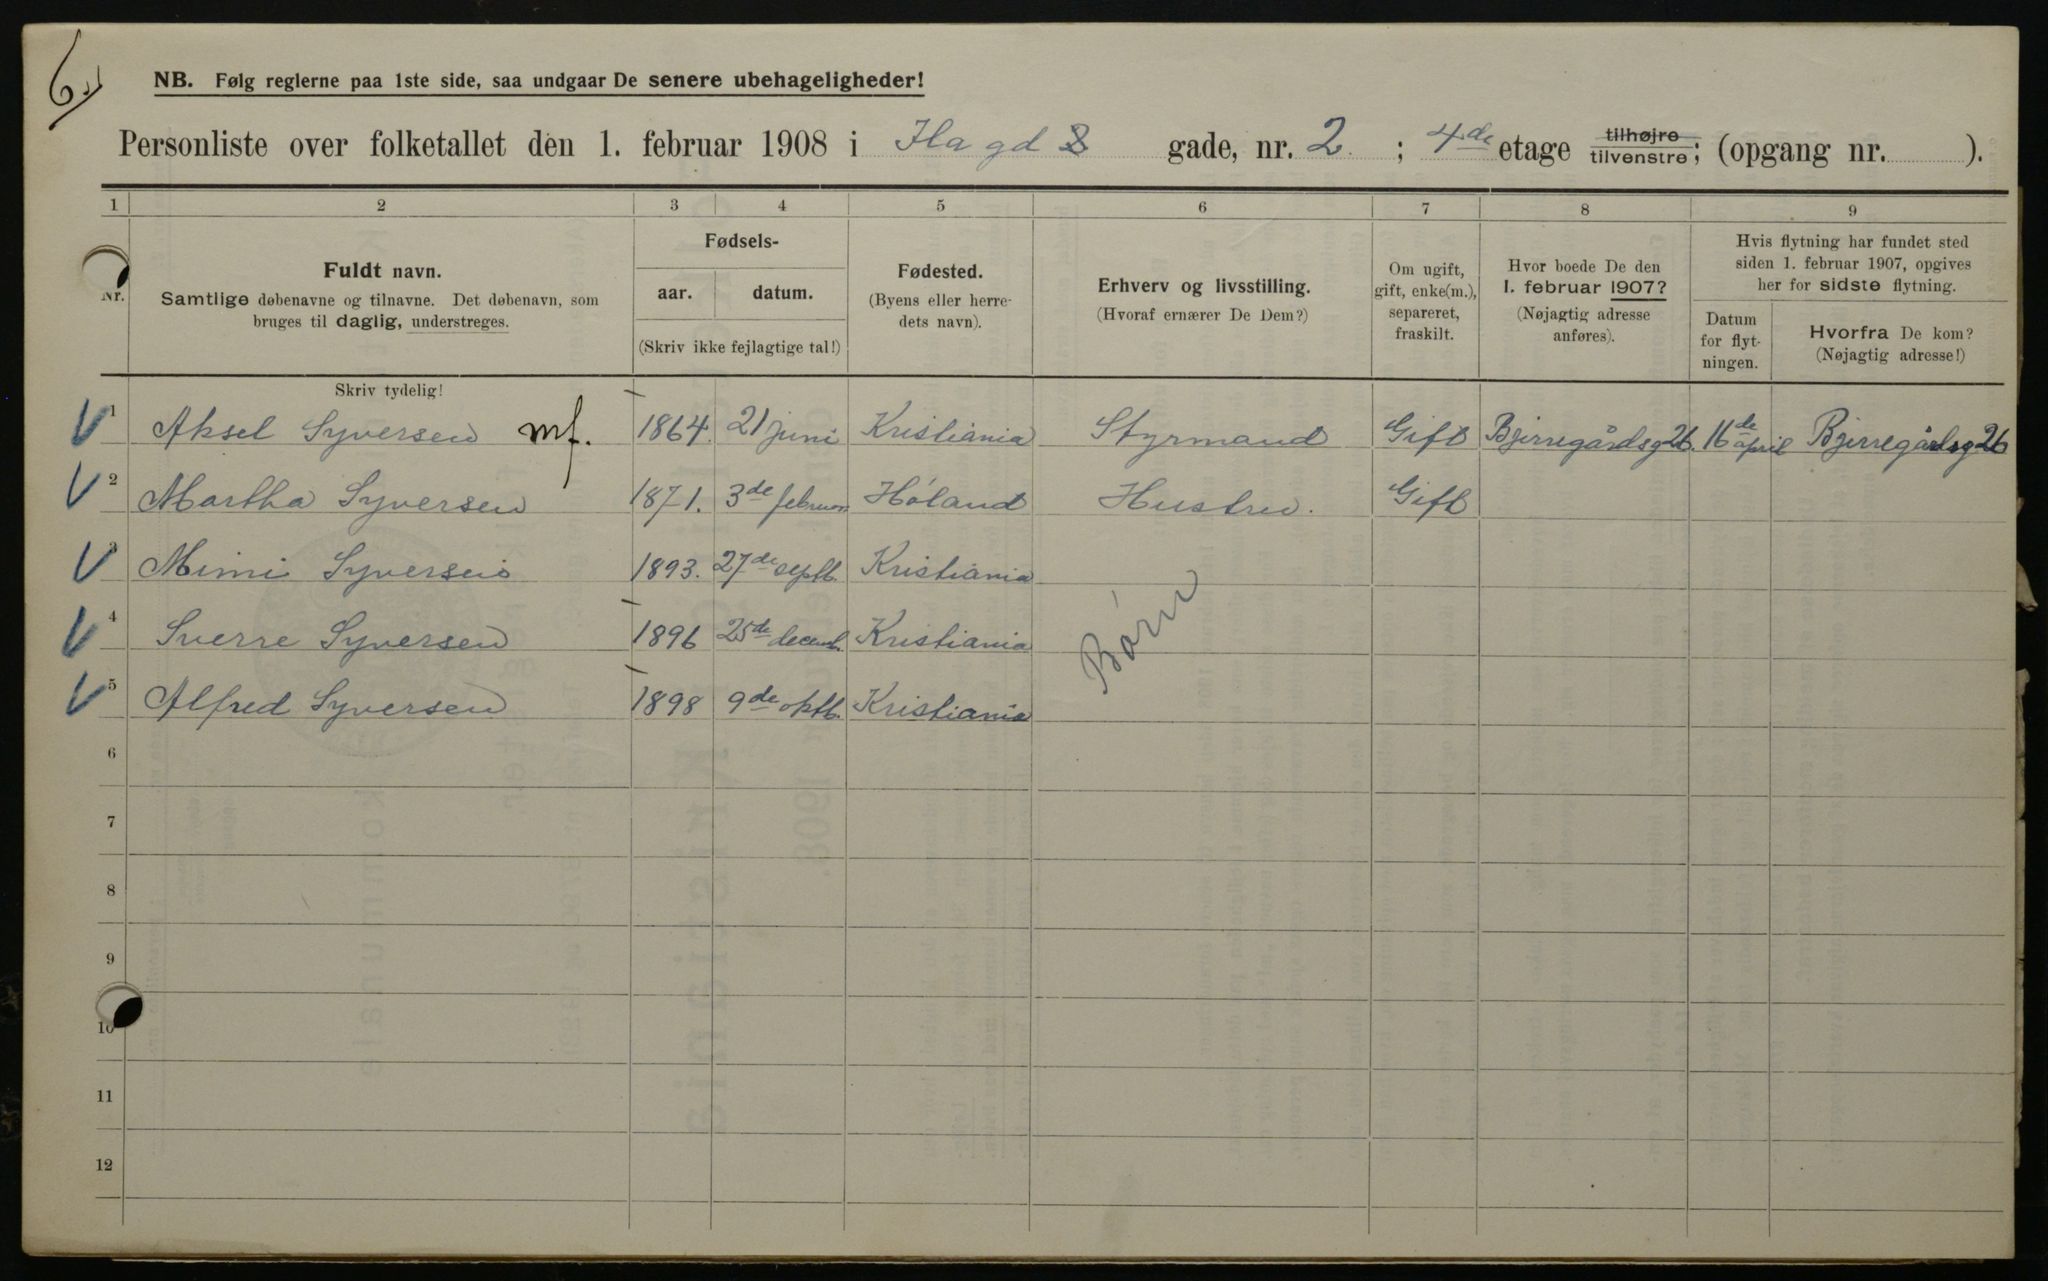 6
NB. Følg reglerne paa 1ste side, saa undgaar De senere ubehageligheder!
Personliste over folketallet den 1. februar 1908 i Ila gd gade, nr. 2 ; 4de etage tilhøjre tilvenstre; (opgang nr. ).
1 2 3 4 5 6 7 8 9
Nr.
Fuldt navn.
Samtlige døbenavne og tilnavne. Det døbenavn, som
bruges til daglig, understreges.
Fødsels-
aar. datum.
(Skriv ikke fejlagtige tal!)
Fødested.
(Byens eller herre-
dets navn).
Erhverv og livsstilling.
(Hvoraf ernærer De Dem?)
Om ugift,
gift, enke(m.),
separeret,
fraskilt.
Hvor boede De den
1. februar 1907?
(Nøjagtig adresse
anføres).
Hvis flytning har fundet sted
siden 1. februar 1907, opgives
her for sidste flytning.
Datum
for flyt-
ningen.
Hvorfra De kom?
(Nøjagtig adresse!)
Skriv tydelig!
1 Aksel Syversen mf. 1864. 21 juni Kristiania Styrmand Gift Bjerregårdsg 26. 16de april Bjerregårdsg 26
2 Martha Syversen 1871. 3de februar Høland Hustru. Gift
3 Mimi Syversen 1893. 27de septb. Kristiania
4 Sverre Syversen 1896 25de decemb. Kristiania Børn
5 Alfred Syversen 1898 9de oktb. Kristiania
6
7
8
9
10
11
12